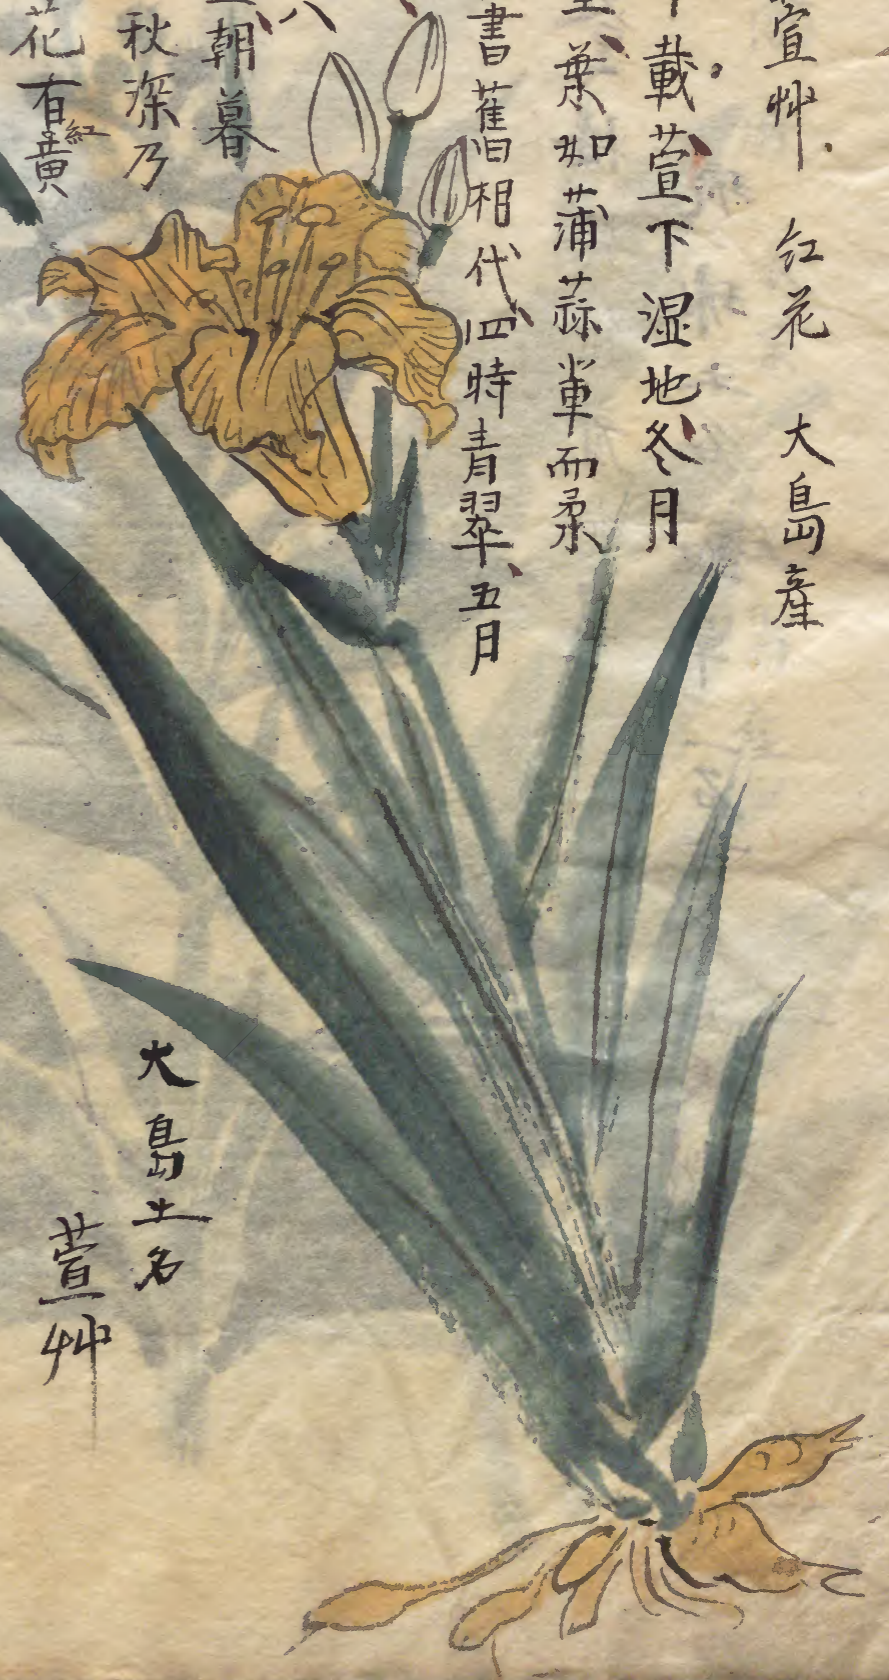 萱艸 紅花 大島産
載萱下湿地冬月
葉如蒲蒜軰而柔
書舊相代四時青翠五月
朝暮
秋深乃
花有紅黄
大島土名
萱艸